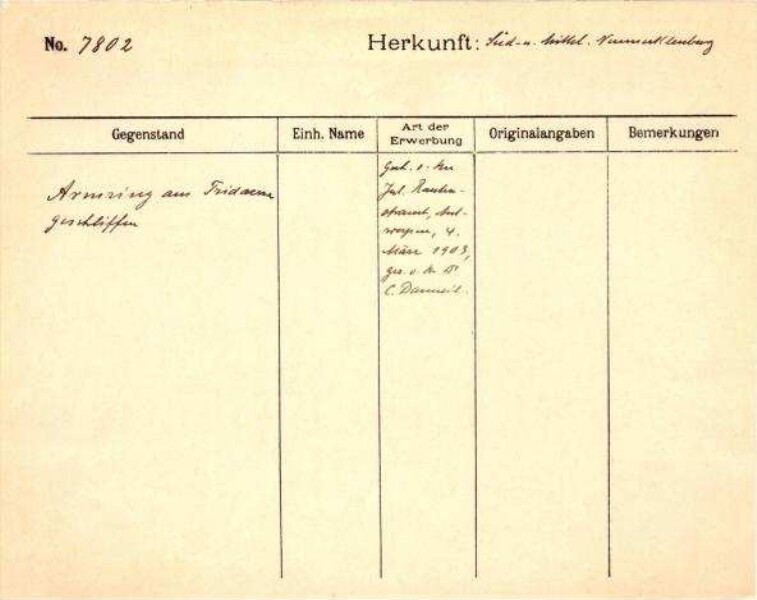 No. 7802
Herkunft: Süd- u. Mittel. Neumecklenburg
Gegenstand
Einh. Name
Art der
Erwerbung
Originalangaben
Bemerkungen
Armring aus Tridacna
geschliffen
Gesch. v. Hrn
Jul. Rauten-
strauch, Ant-
werpen, 4.
März 1903,
ges. v. Hr.
C. Danneil.